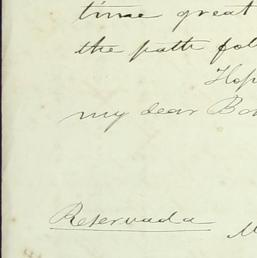 time great
the path fol
Hop
my dear Bo
Reservada
M